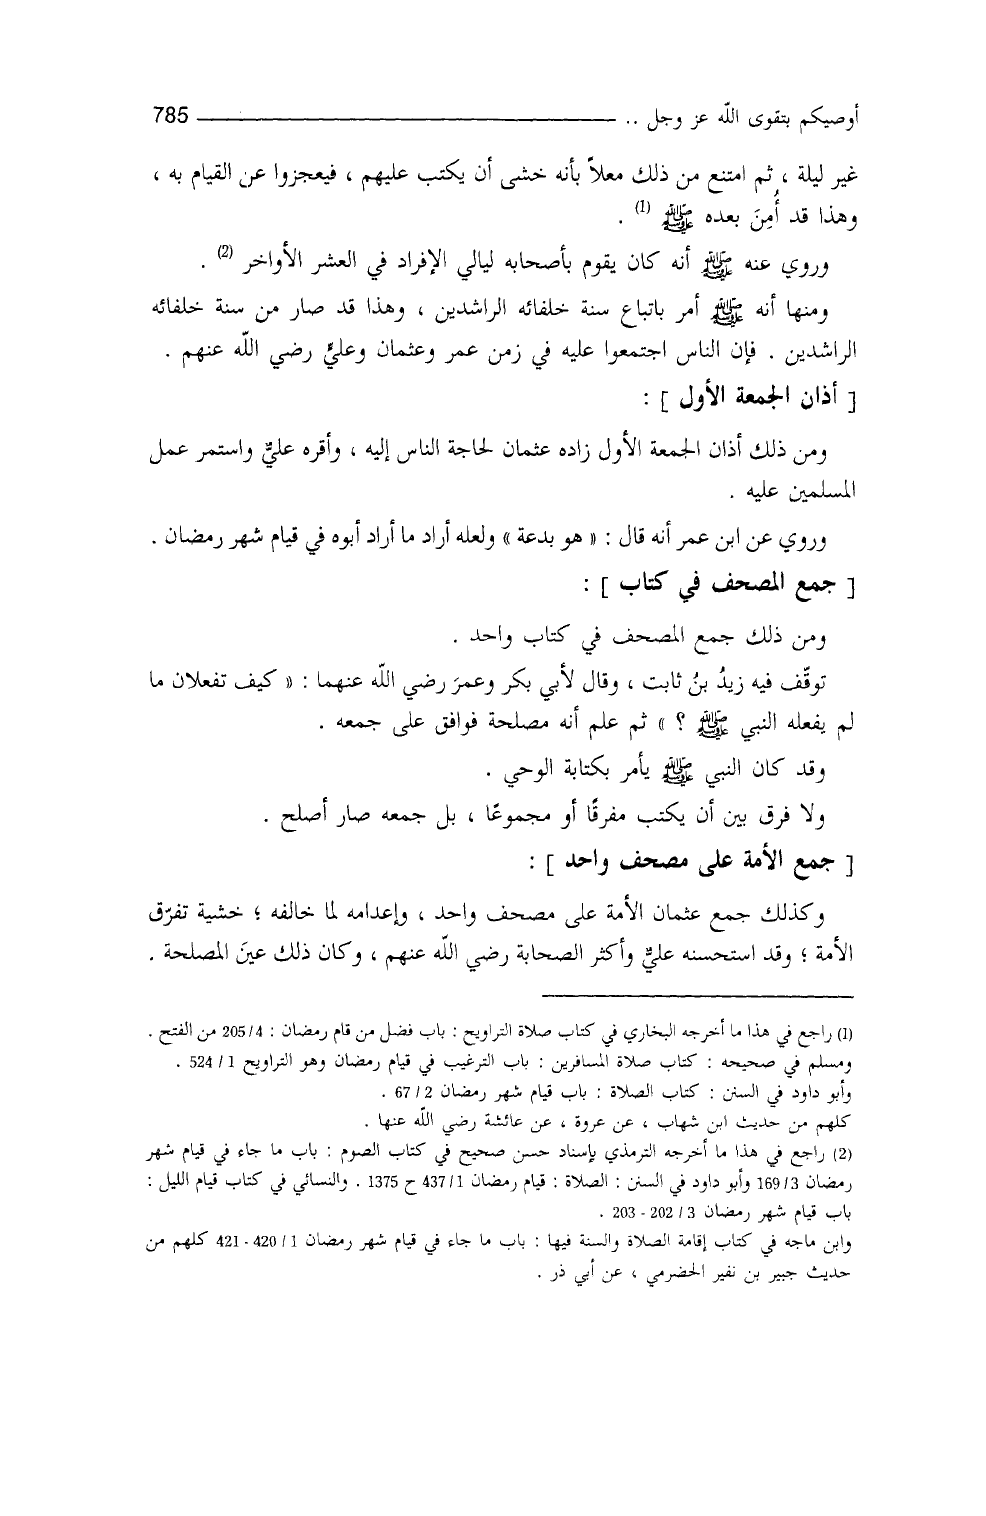 أوصيكم بتقوى الله عز وجل .. 785
غير ليلة ، ثم امتنع من ذلك معلاً بأنه خشى أن يكتب عليهم ، فيعجزوا عن القيام به ،
وهذا قد أُمِنَ بعده ﷺ (1) .
وروي عنه ﷺ أنه كان يقوم بأصحابه ليالي الإفراد في العشر الأواخر (2) .
ومنها أنه ﷺ أمر باتباع سنة خلفائه الراشدين ، وهذا قد صار من سنة خلفائه
الراشدين . فإن الناس اجتمعوا عليه في زمن عمر وعثمان وعليٍّ رضي الله عنهم .
[ أذان الجمعة الأول ] :
ومن ذلك أذان الجمعة الأول زاده عثمان لحاجة الناس إليه ، وأقره عليٌّ واستمر عمل
المسلمين عليه .
وروي عن ابن عمر أنه قال : « هو بدعة » ولعله أراد ما أراد أبوه في قيام شهر رمضان .
[ جمع المصحف في كتاب ] :
ومن ذلك جمع المصحف في كتاب واحد .
توقّف فيه زيدُ بنُ ثابت ، وقال لأبي بكر وعمرَ رضي الله عنهما : « كيف تفعلان ما
لم يفعله النبي ﷺ ؟ » ثم علم أنه مصلحة فوافق على جمعه .
وقد كان النبي ﷺ يأمر بكتابة الوحي .
ولا فرق بين أن يكتب مفرقًا أو مجموعًا ، بل جمعه صار أصلح .
[ جمع الأمة على مصحف واحد ] :
وكذلك جمع عثمان الأمة على مصحف واحد ، وإعدامه لما خالفه ؛ خشية تفرّق
الأمة ؛ وقد استحسنه عليٌّ وأكثر الصحابة رضي الله عنهم ، وكان ذلك عينَ المصلحة .
(1) راجع في هذا ما أخرجه البخاري في كتاب صلاة التراويح : باب فضل من قام رمضان : 205/4 من الفتح .
ومسلم في صحيحه : كتاب صلاة المسافرين : باب الترغيب في قيام رمضان وهو التراويح 1 / 524 .
وأبو داود في السنن : كتاب الصلاة : باب قيام شهر رمضان 2 / 67 .
كلهم من حديث ابن شهاب ، عن عروة ، عن عائشة رضي الله عنها .
(2) راجع في هذا ما أخرجه الترمذي بإسناد حسن صحيح في كتاب الصوم : باب ما جاء في قيام شهر
رمضان 3/ 169 وأبو داود في السنن : الصلاة : قيام رمضان 1/ 437 ح 1375 . والنسائي في كتاب قيام الليل :
باب قيام شهر رمضان 3 / 202 - 203 .
وابن ماجه في كتاب إقامة الصلاة والسنة فيها : باب ما جاء في قيام شهر رمضان 1 / 420 - 421 كلهم من
حديث جبير بن نفير الحضرمي ، عن أبي ذر .